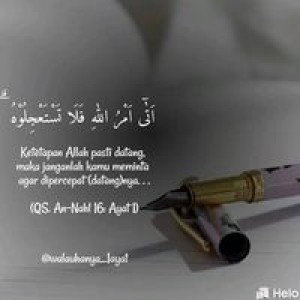 اَتٰٓى اَمْرُ اللّٰهِ فَلَا تَسْتَعْجِلُوْهُ
Ketetapan Allah pasti datang,
maka janganlah kamu meminta
agar dipercepat (datang)nya. . .
(QS. An-Nahl 16: Ayat 1)
@walauhanya_1ayat
Helo